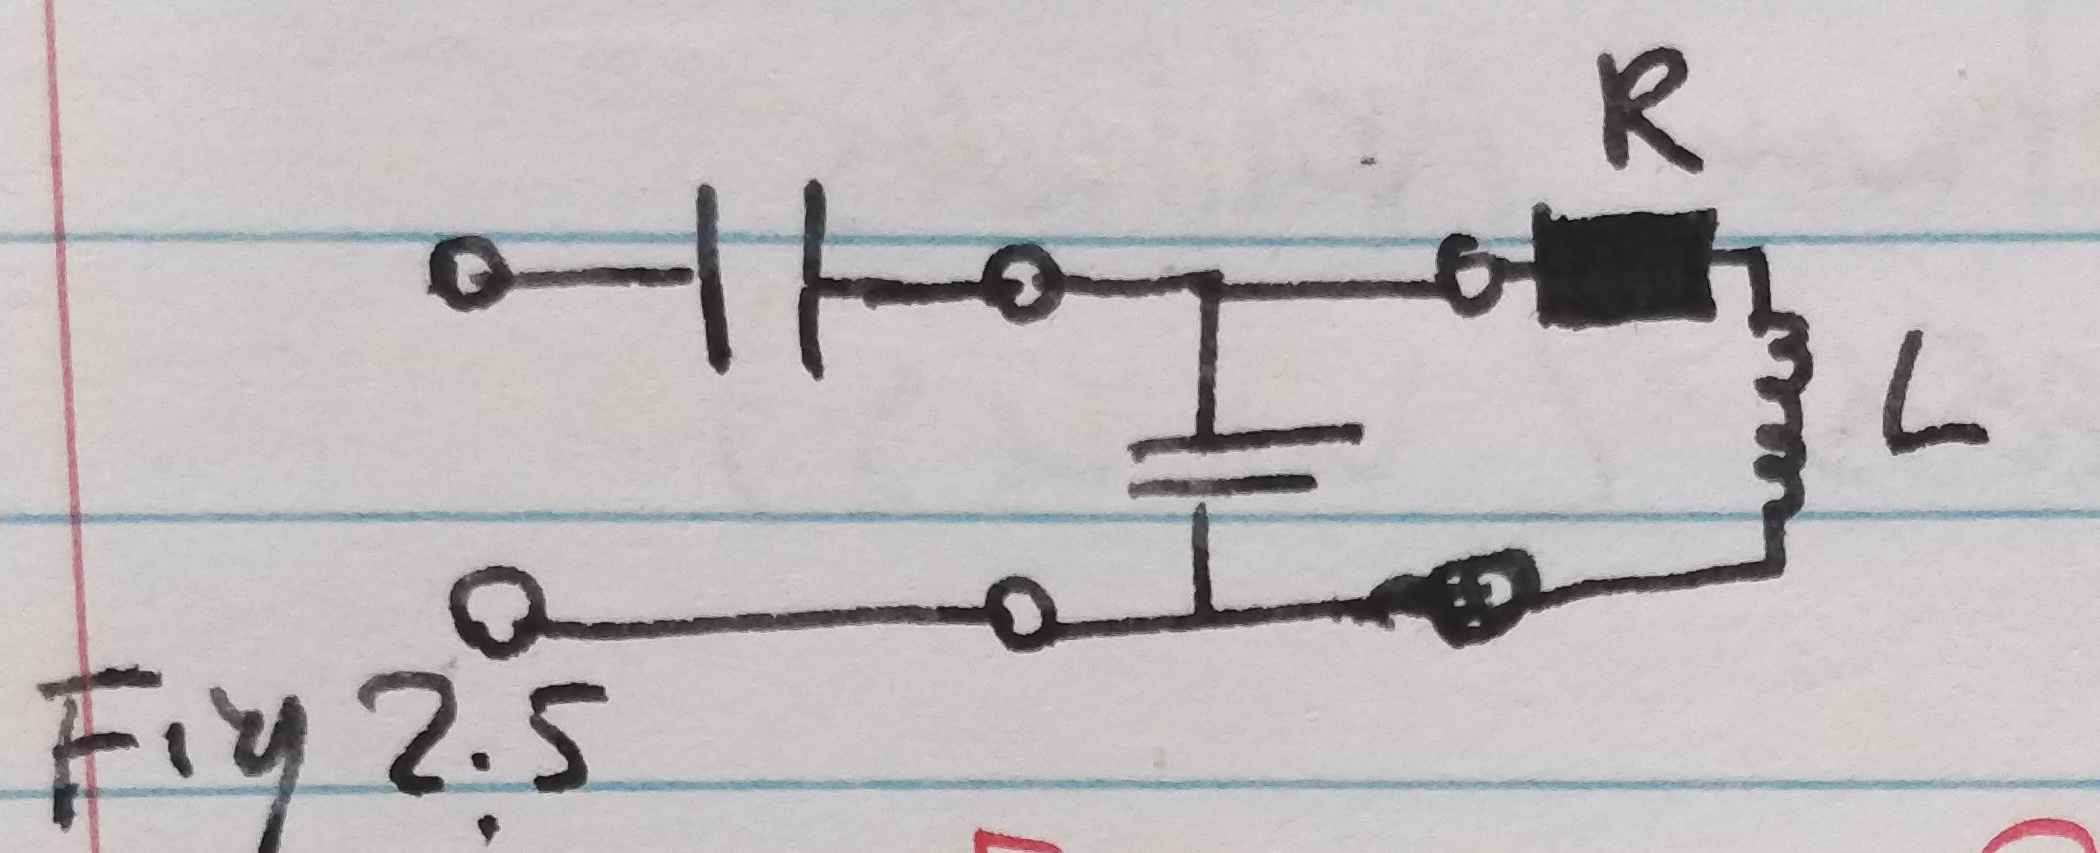 R
L
Fig 2.5